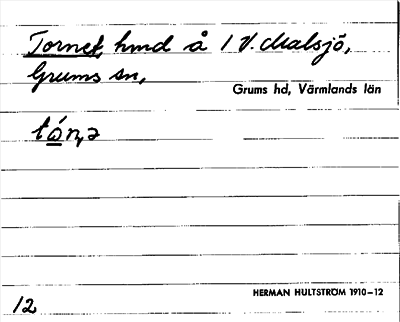 Tornet, hmd å 1 V. Malsjö,
Grums sn,
Grums hd, Värmlands län
tó̲n,ə
HERMAN HULTSTRÖM 1910–12
12